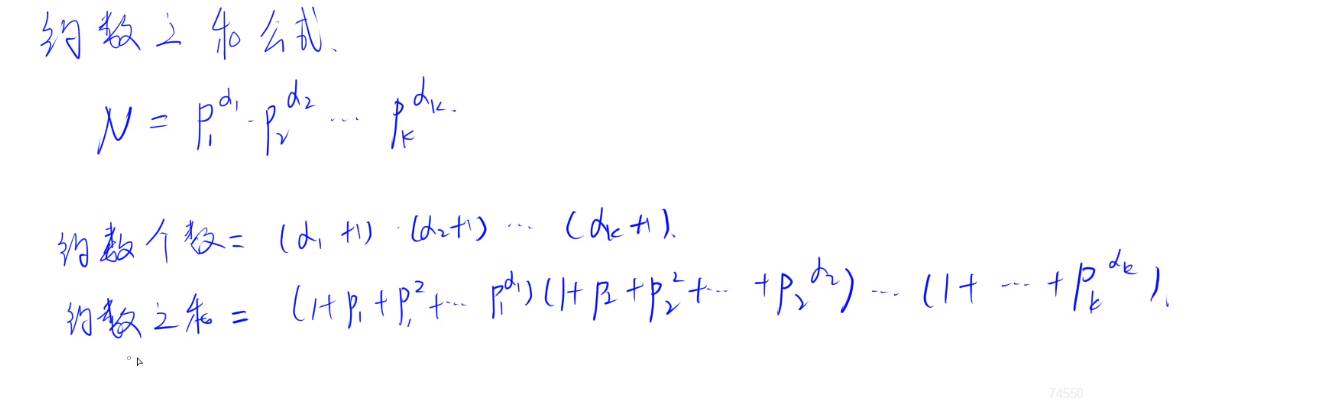 约数之和公式.
N = p₁^α₁ · p₂^α₂ ··· pₖ^αₖ.
约数个数 = (α₁+1)·(α₂+1) ··· (αₖ+1).
约数之和 = (1+p₁+p₁²+··· p₁^α₁)(1+p₂+p₂²+··· +p₂^α₂) ··· (1+ ··· +pₖ^αₖ).
74550